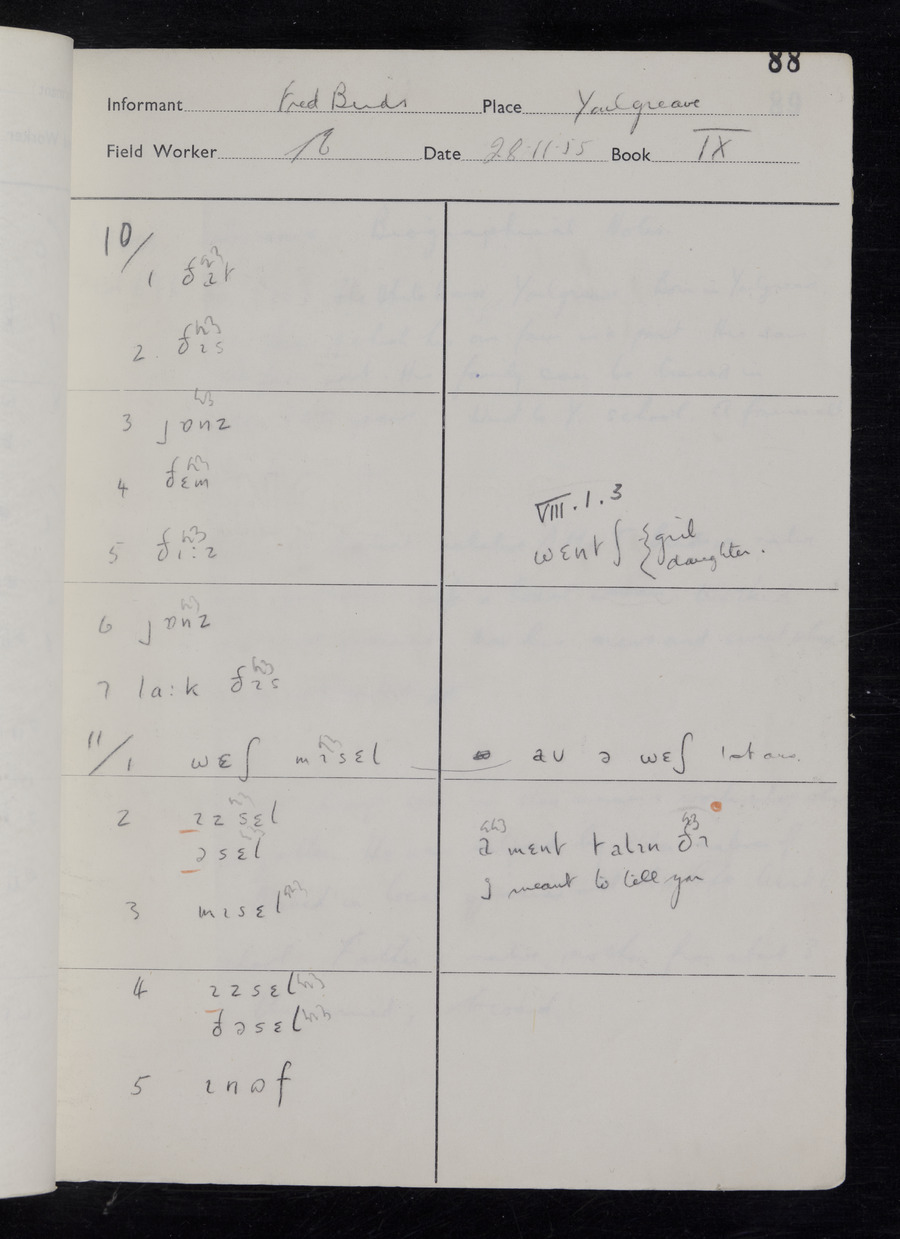 88
Informant Fred Birds Place Youlgreave
Field Worker Date 28.11.55 Book IX
10/
1 ðat
2. ðɪs
3 jɒnz
4 ðɛm
5 ði:z
VIII.1.3
wɛntʃ { girl
daughter.
6 jɒnz
7 la:k ðɪs
11/
1 wɛʃ mɪsɛl
av ə wɛʃ 1st ans.
2 ɪzsɛl
əsɛl
a mɛnt talɪn ðɪ
I meant to tell you
3 mɪsɛl
4 ɪzsɛl
ðəsɛl
5 ɪnɒf